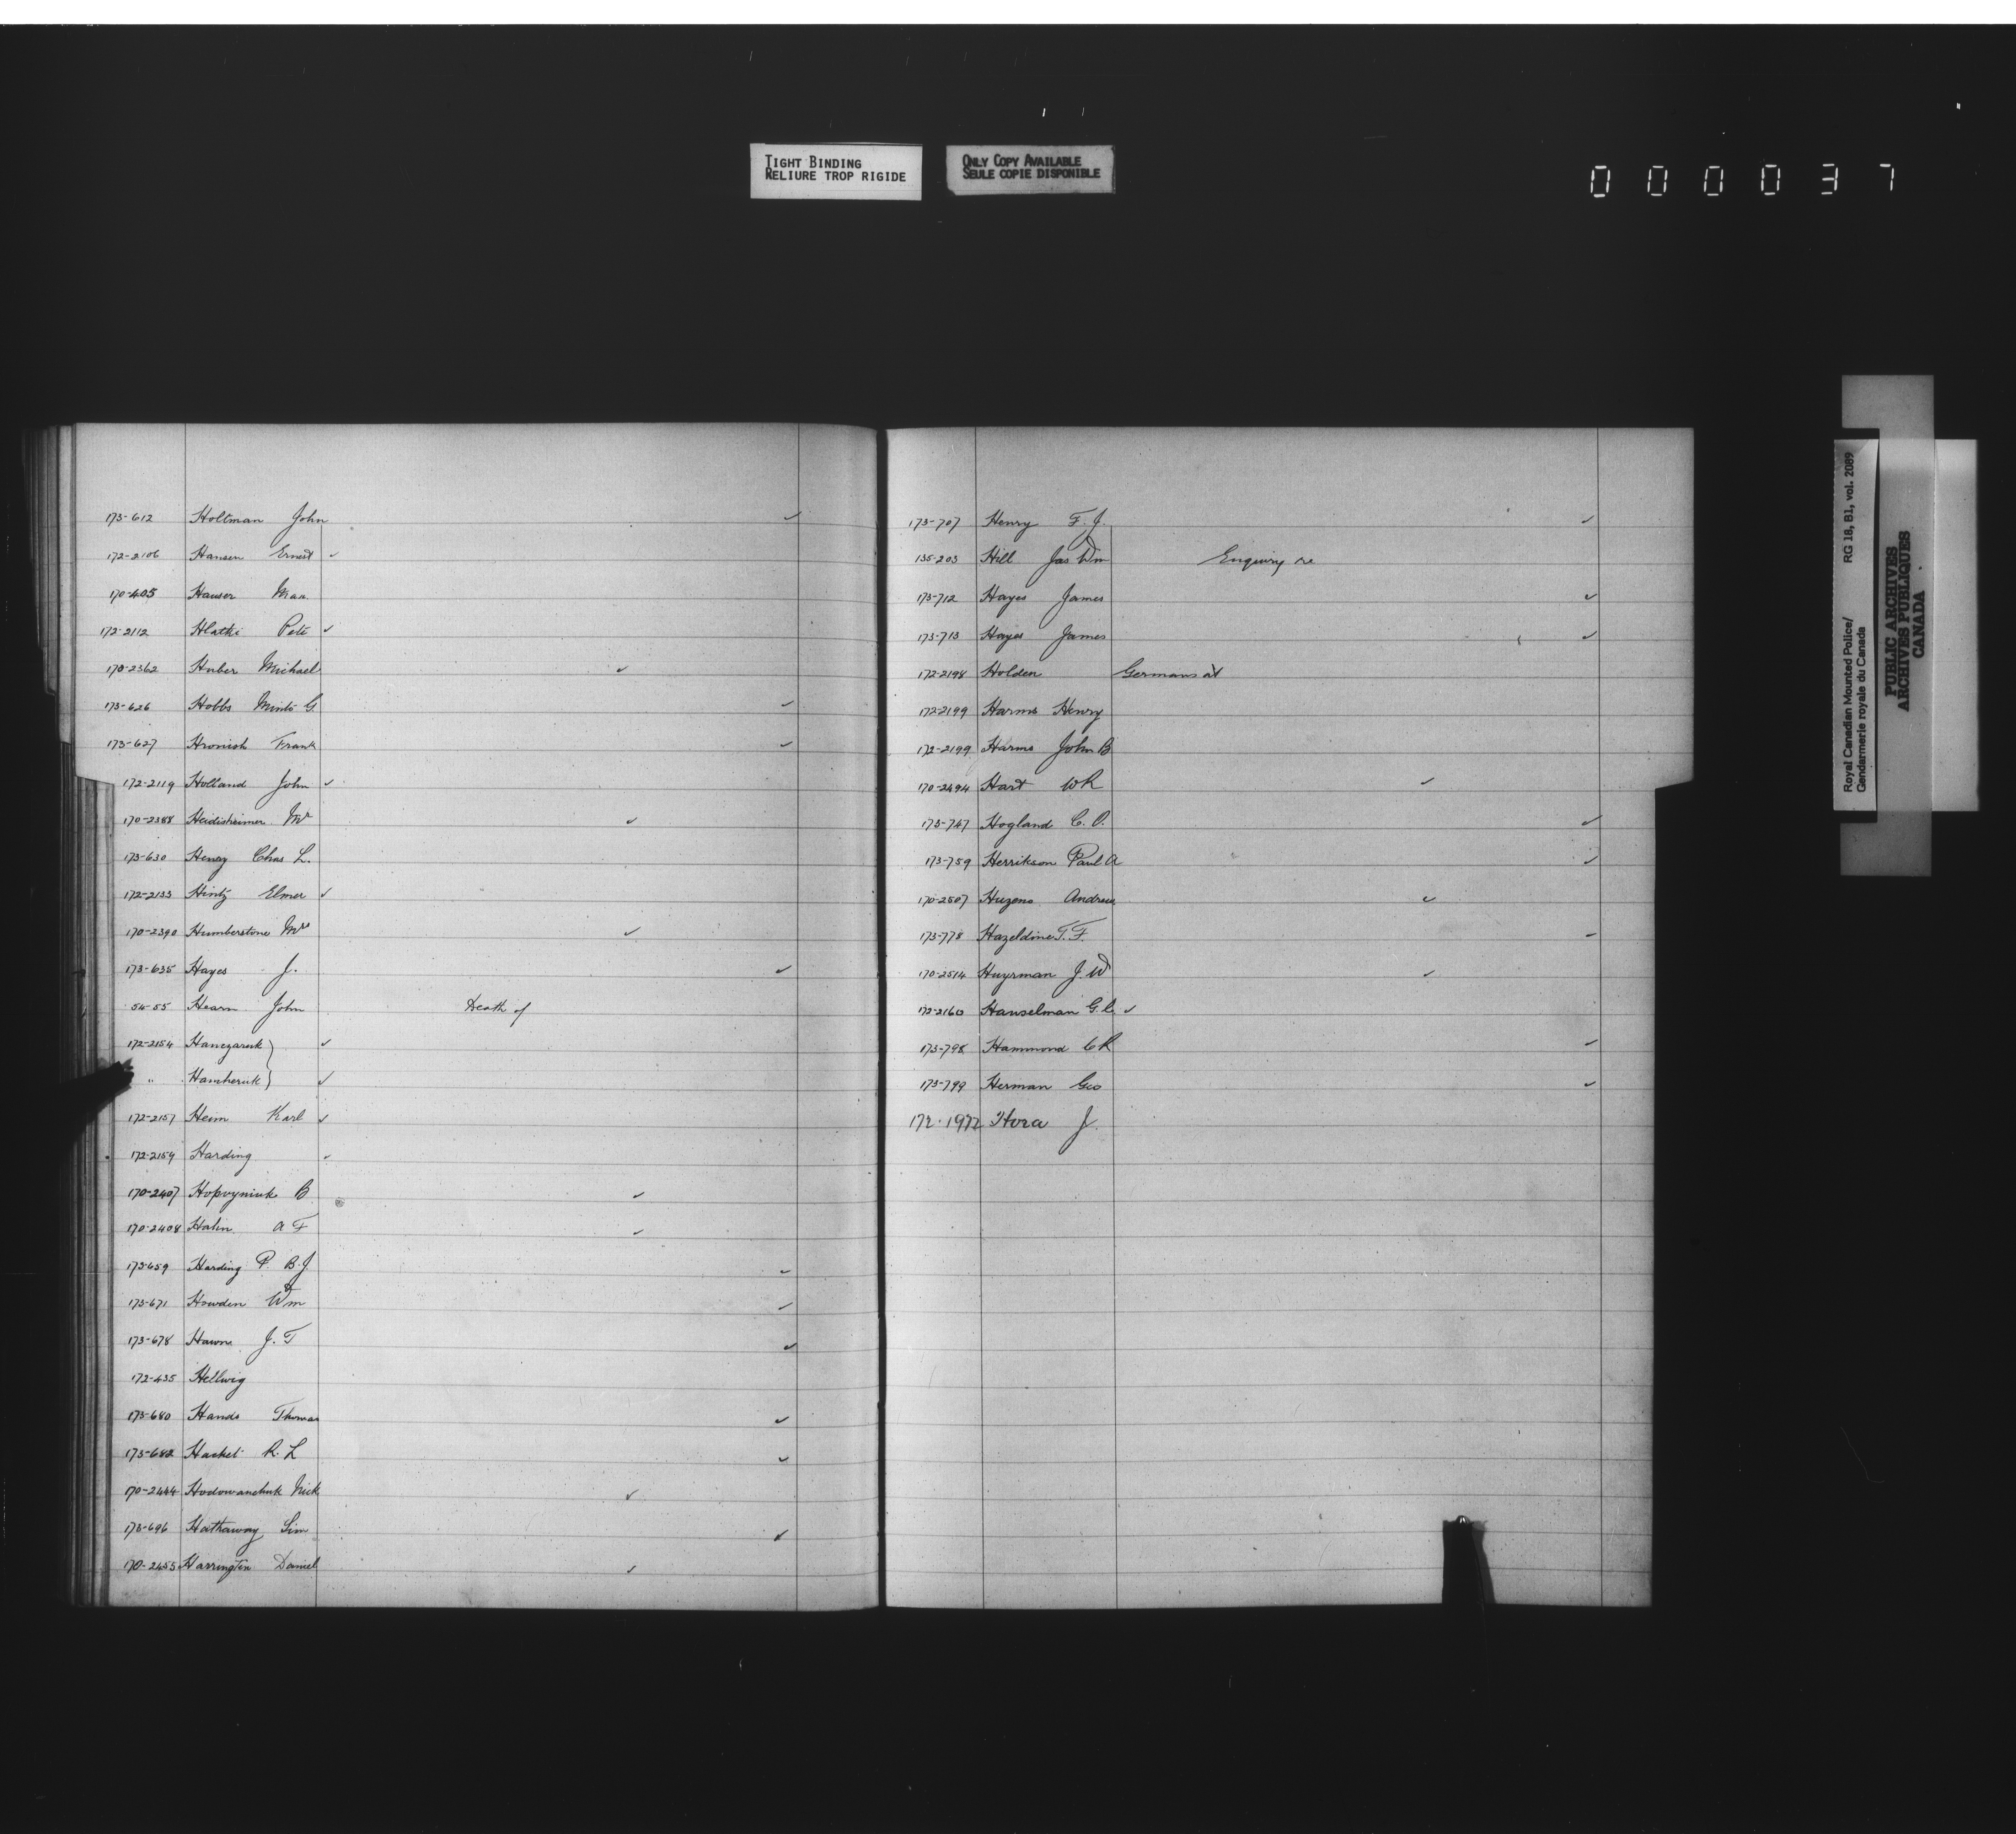 TIGHT BINDING
RELIURE TROP RIGIDE
ONLY COPY AVAILABLE
SEULE COPIE DISPONIBLE
000037
173-612 Holtman John ✓
172-2106 Hansen Ernest ✓
170-405 Hauser
172-2112 Hlatki Pete ✓
170-2362 Huber Michael ✓
173-626 Hobbs Minto G ✓
173-627 Hronish Frank ✓
172-2119 Holland John ✓
170-2388 Heidisheimer Mr ✓
173-630 Henry Chas L.
172-2133 Hintz Elmer ✓
170-2390 Humberstone Mrs ✓
173-635 Hayes J. ✓
54-55 Hearn John Death of
172-2154 Hanczaruk } ✓
" Hamheruk } ✓
172-2157 Heim Karl ✓
172-2159 Harding ✓
170-2407 Hopvyniuk B ✓
170-2408 Hahn A F ✓
173-659 Harding P. B. J. ✓
173-671 Howden Wm ✓
173-678 Hawn J. T ✓
172-435 Hellwig
173-680 Hands Thomas ✓
173-682 Hacket R. L ✓
170-2444 Hodowanchuk Nick ✓
173-696 Hathaway Sim ✓
170-2455 Harrington Daniel ✓
173-707 Henry F. J. ✓
135-203 Hill Jas Wm Enquiry re
173-712 Hayes James ✓
173-713 Hayes James ✓
172-2198 Holden Germans at
172-2199 Harms Henry
172-2199 Harms John B
170-2494 Hart W R ✓
173-747 Hogland C. O. ✓
173-759 Herrikson Paul A ✓
170-2507 Huzens Andrew ✓
173-778 Hazeldine T. F. ✓
170-2514 Huyrman J. W ✓
172-2160 Hanselman G. C. ✓
173-798 Hammond C R ✓
173-799 Herman Geo ✓
172-1972 Hora J.
Royal Canadian Mounted Police/ RG 18, B1, vol. 2089
Gendarmerie royale du Canada
PUBLIC ARCHIVES
ARCHIVES PUBLIQUES
CANADA